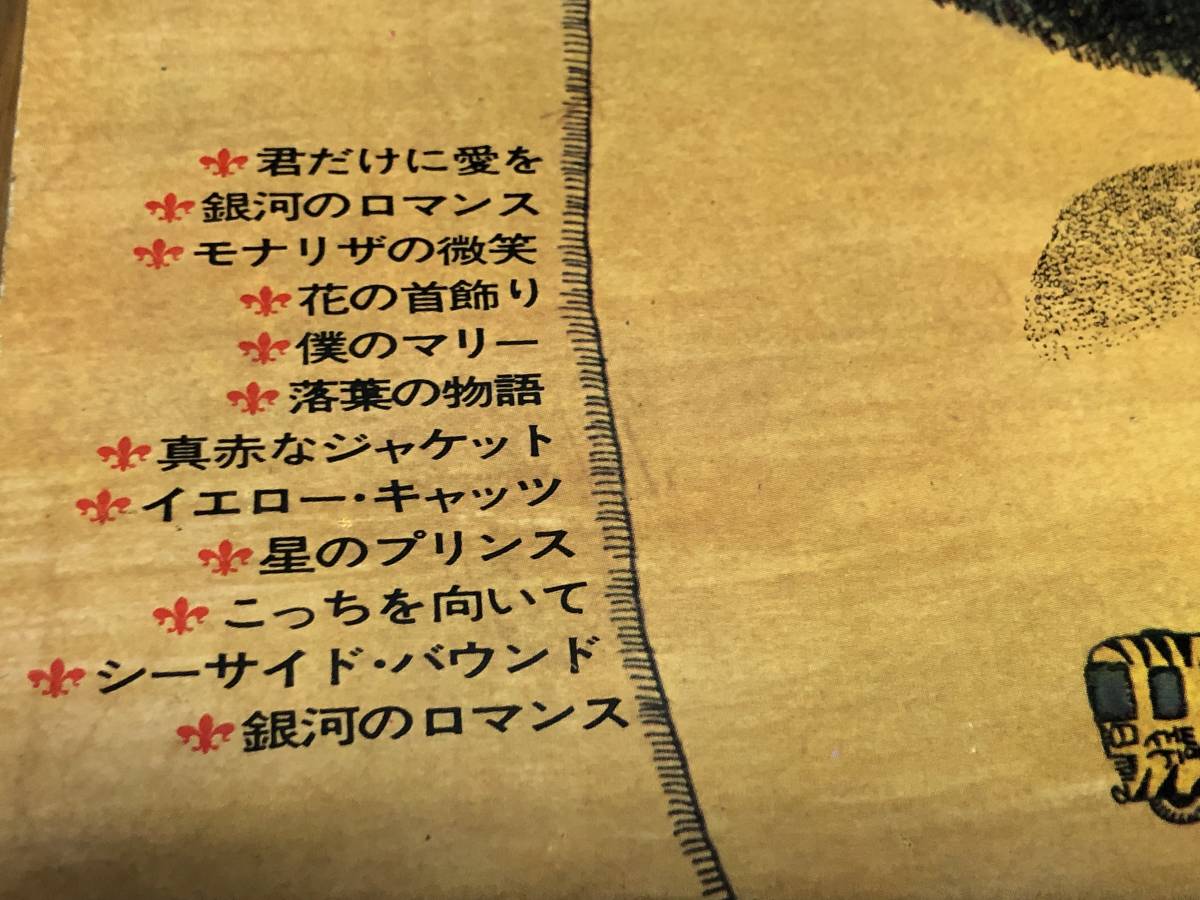 君だけに愛を
銀河のロマンス
モナリザの微笑
花の首飾り
僕のマリー
落葉の物語
真赤なジャケット
イエロー・キャッツ
星のプリンス
こっちを向いて
シーサイド・バウンド
銀河のロマンス